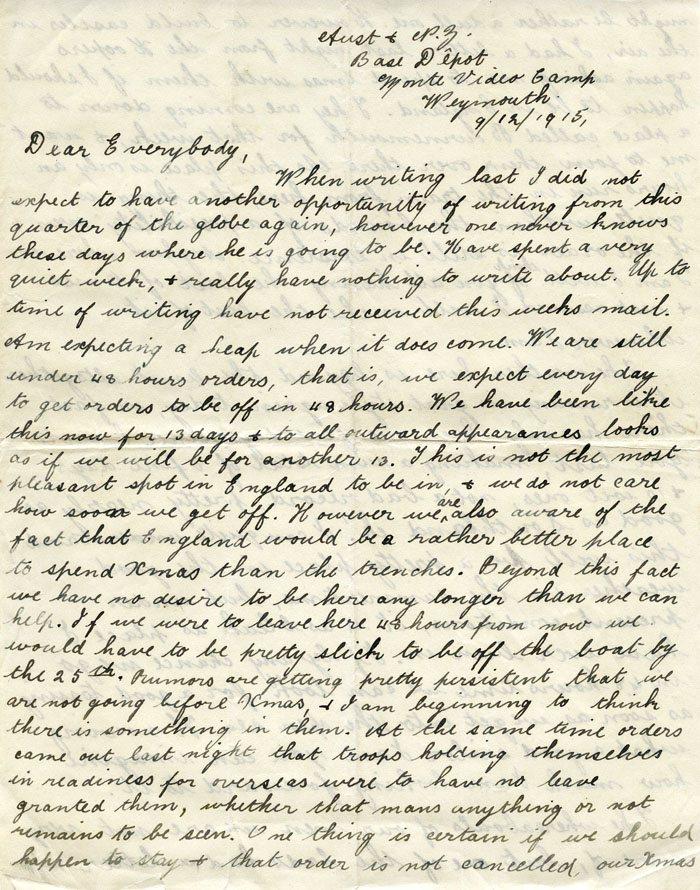 Aust & N.Z.
Base Dêpot
Monte Video Camp
Weymouth.
9/12/1915,
Dear Everybody,
When writing last I did not
expect to have another opportunity of writing from this
quarter of the globe again, however one never knows
these days where he is going to be. Have spent a very
quiet week, & really have nothing to write about. Up to
time of writing have not received this weeks mail.
Am expecting a heap when it does come. We are still
under 48 hours orders, that is, we expect every day
to get orders to be off in 48 hours. We have been like
this now for 13 days & to all outward appearances looks
as if we will be for another 13. This is not the most
pleasant spot in England to be in, & we do not care
how soon we get off. However we are also aware of the
fact that England would be a rather better place
to spend Xmas than the trenches. Beyond this fact
we have no desire to be here any longer than we can
help. If we were to leave here 48 hours from now we
would have to be pretty slick to be off the boat by
the 25th. Rumors are getting pretty persistent that we
are not going before Xmas, & I am beginning to think
there is something in them. At the same time orders
came out last night that troops holding themselves
in readiness for overseas were to have no leave
granted them, whether that mans anything or not
remains to be seen. One thing is certain if we should
happen to stay & that order is not cancelled, our Xmas